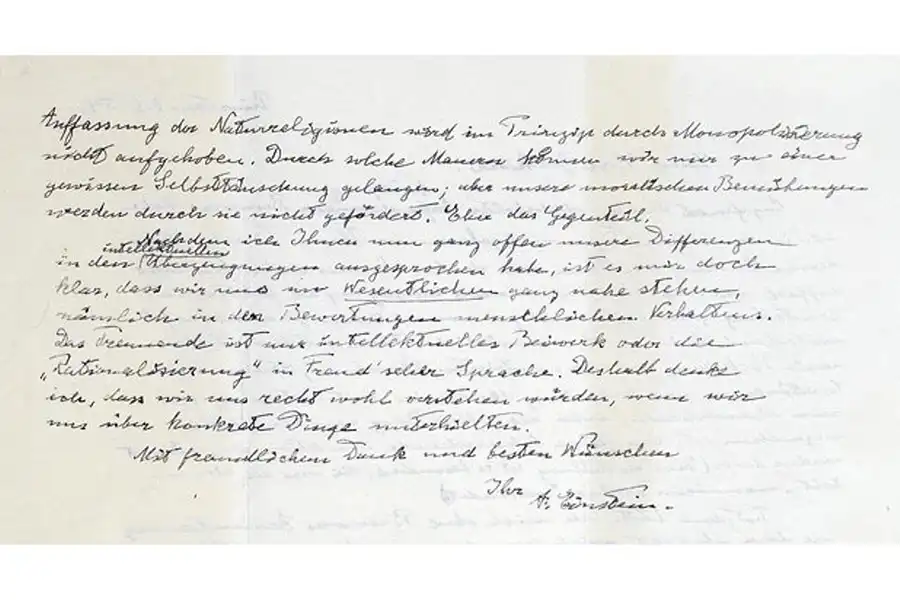 Auffassung der Naturreligionen wird im Prinzip durch Monopolisierung
nicht aufgehoben. Durch solche Mauern können wir nur zu einer
gewissen Selbsttäuschung gelangen; aber unsere moralischen Bemühungen
werden durch sie nicht gefördert. Eher das Gegenteil.
Nachdem ich Ihnen nun ganz offen unsere Differenzen
intellektuellen
in den Überzeugungen ausgesprochen habe, ist es mir doch
klar, dass wir uns im Wesentlichen ganz nahe stehen,
nämlich in den Bewertungen menschlichen Verhaltens.
Das Trennende ist nur intellektuelles Beiwerk oder die
„Rationalisierung“ in Freud'scher Sprache. Deshalb denke
ich, dass wir uns recht wohl verstehen würden, wenn wir
uns über konkrete Dinge unterhielten.
Mit freundlichem Dank und besten Wünschen
Ihr
A. Einstein.